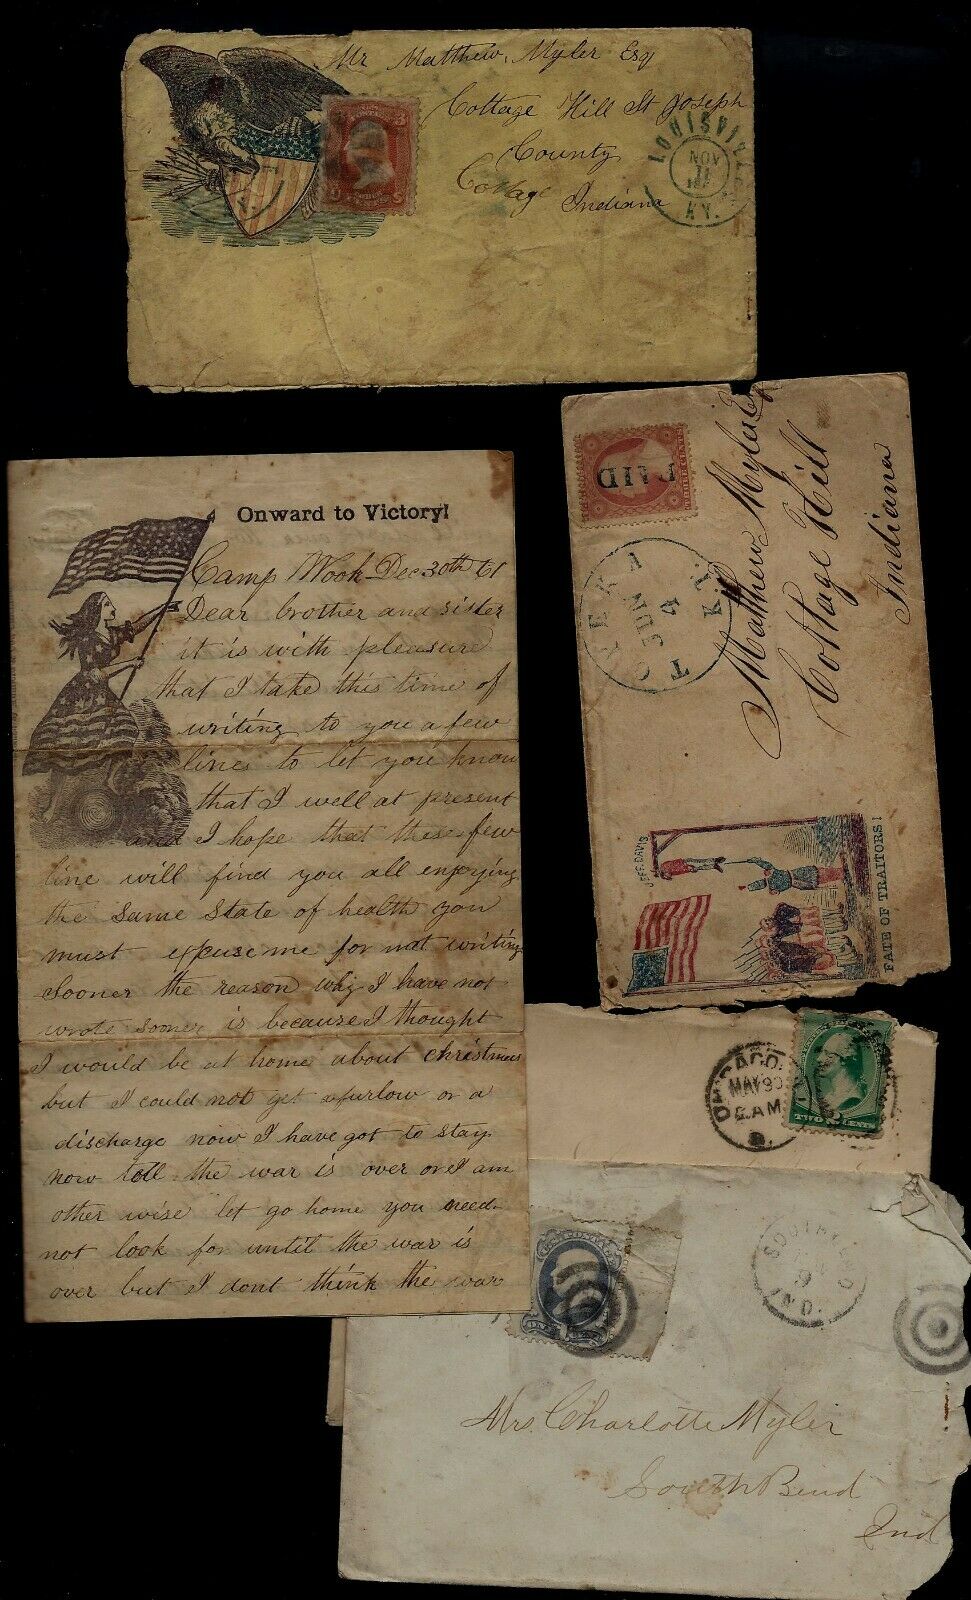 Mr Matthew, Myler Esq
Cottage Hill St Joseph
County
Cottage
Indiana
LOUISVILLE
NOV
11
KY.
PAID
Matthew Myler
Cottage Hill
Indiana
TOLERA
JUN
4
KY.
JEFF. DAVIS
FATE OF TRAITORS!
Onward to Victory!
Camp Wook Dec 30th 61
Dear brother and sister
it is with pleasure
that I take this time of
writing to you a few
lines to let you know
that I well at present
and I hope that these few
line will find you all enjoying
the same state of health you
must expuse me for not writing
sooner the reason why I have not
wrote sooner is because I thought
I would be at home about christmas
but I could not get a furlow or a
discharge now I have got to stay
now till the war is over or I am
other wise let go home you need
not look for until the war is
over but I dont think the war
CHICAGO,
MAY 30
AM
TWO CENTS
ONE CENT
SOUTH BEND
9
IND.
Mrs. Charlotte Myler
South Bend
Ind